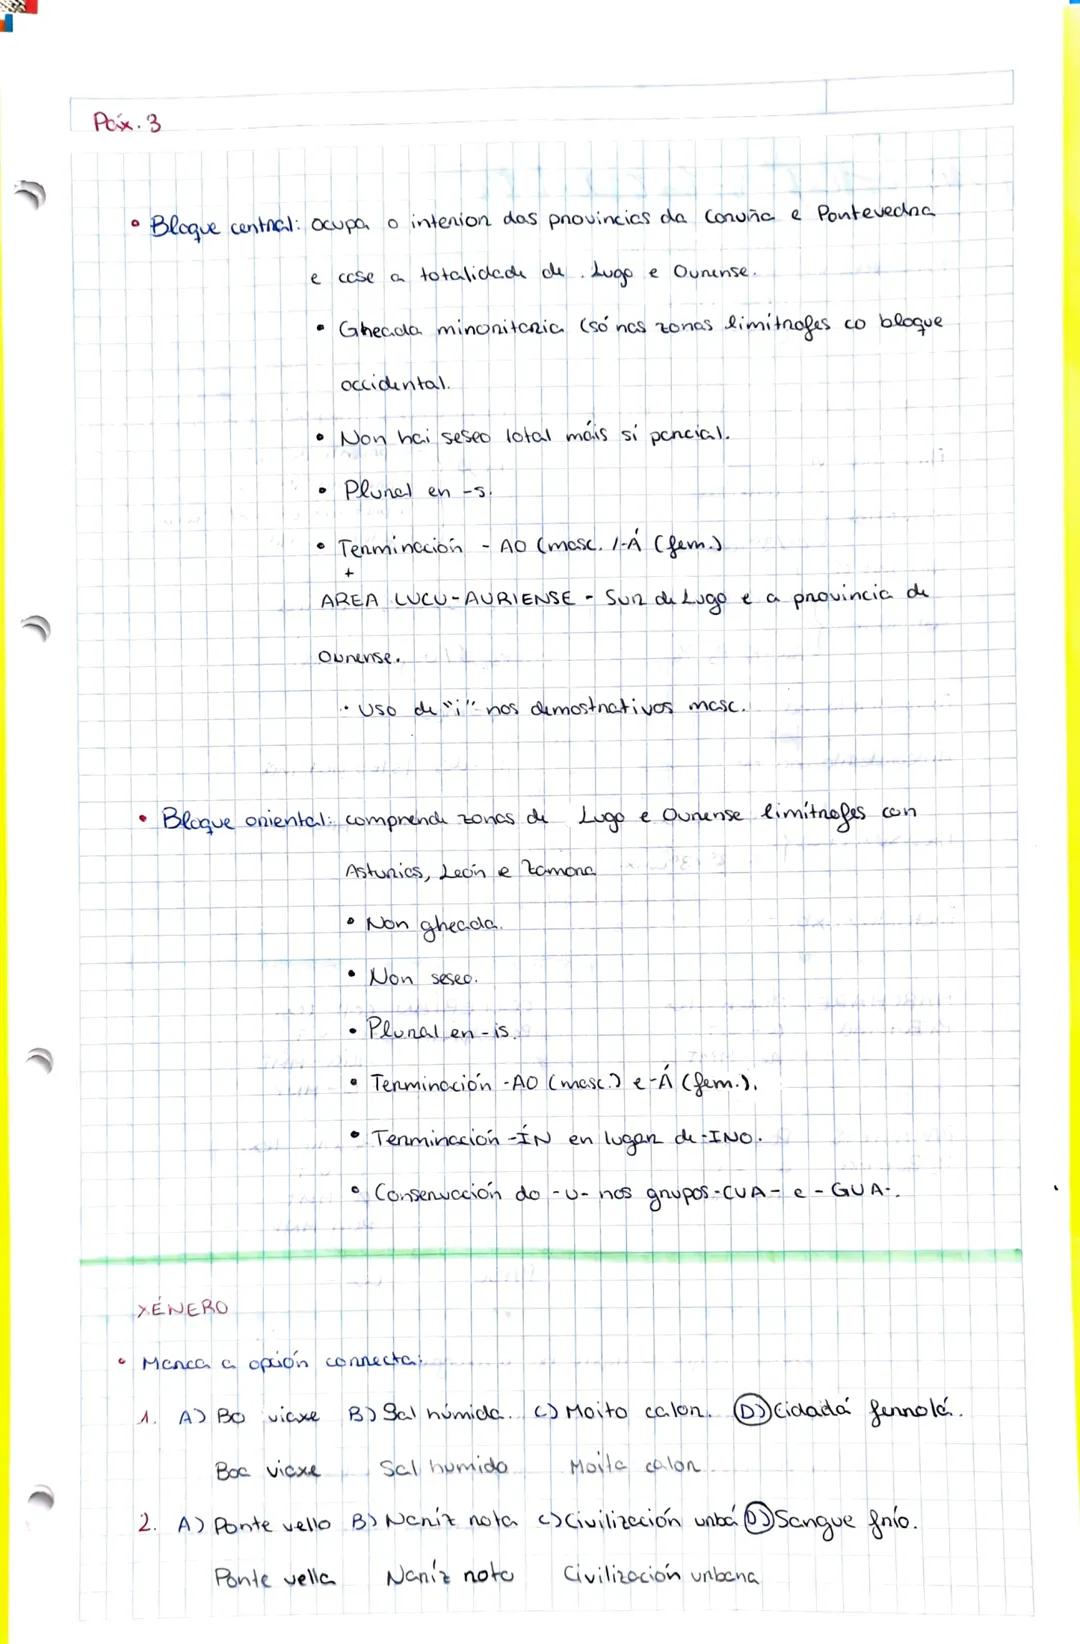 Páx. 3
• Bloque central: ocupa o interior das provincias da Coruña e Pontevedra
e case a totalidade de . Lugo e Ourense.
• Gheada minoritaria (só nas zonas limítrofes co bloque
occidental.
• Non hai seseo total máis sí parcial.
• Plural en -s.
• Terminación - AO (masc. /-Á (fem.)
+
AREA LUCU-AURIENSE - Sur de Lugo e a provincia de
Ourense.
• Uso de "i" nos demostrativos masc.
• Bloque oriental: comprende zonas de Lugo e Ourense limítrofes con
Asturias, León e Zamora
• Non gheada.
• Non seseo.
• Plural en -is.
• Terminación -AO (masc.) e -Á (fem.).
• Terminación -ÍN en lugar de -INO.
• Conservación do -U- nos grupos -CUA- e -GUA-.
XÉNERO
• Marca a opción correcta:
1. A) Bo viaxe B) Sal húmida. C) Moito calor. D) Cidadá ferrolá.
Boa viaxe Sal humido Moita calor
2. A) Ponte vello B) Nariz rota C) Civilización urbá D) Sangue frío.
Ponte vella Nariz roto Civilización urbana